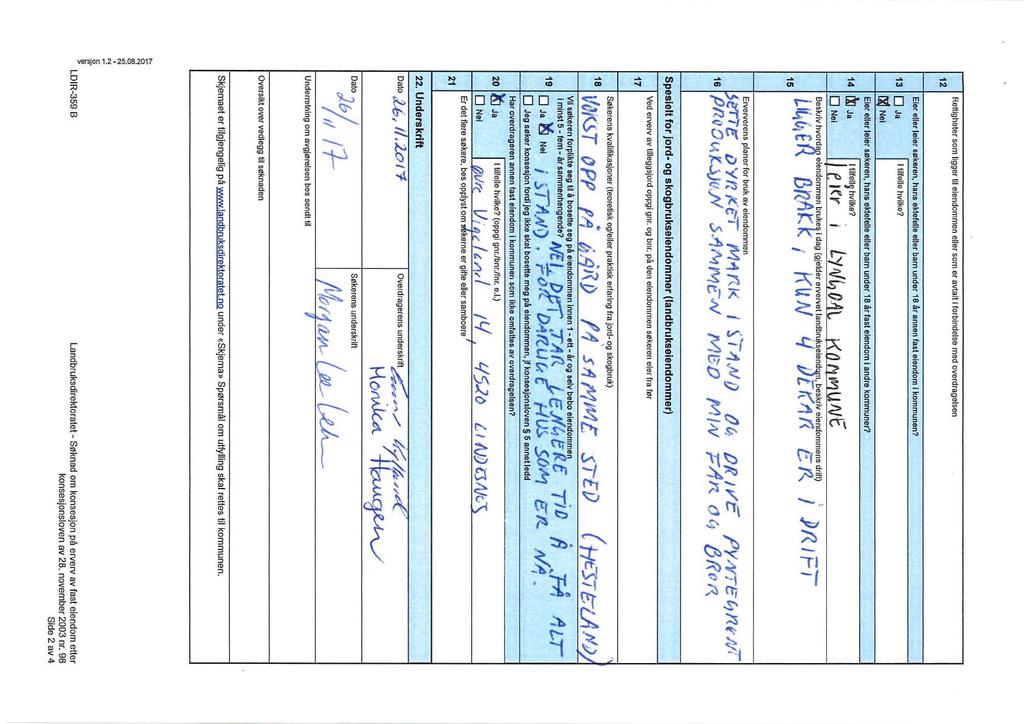 12 Rettigheter som ligger til eiendommen eller som er avtalt i forbindelse med overdragelsen
Eier eller leier søkeren, hans ektefelle eller barn under 18 år annen fast eiendom i kommunen?
13 ☐ Ja I tilfelle hvilke?
☒ Nei
Eier eller leier søkeren, hans ektefelle eller barn under 18 år fast eiendom i andre kommuner?
14 ☒ Ja I tilfelle hvilke?
☐ Nei leier i LYNGDAL KOMMUNE
Beskriv hvordan eiendommen brukes i dag (gjelder ervervet landbrukseiendom, beskriv eiendommens drift)
15 LIGGER BRAKK, KUN 4 DEKAR ER I DRIFT
Erververens planer for bruk av eiendommen
16 SETTE DYRKET MARK I STAND OG DRIVE PYNTEGRØNT
PRODUKSJON SAMMEN MED MIN FAR OG BROR
Spesielt for jord- og skogbrukseiendommer (landbrukseiendommer)
17 Ved erverv av tilleggsjord oppgi gnr. og bnr. på den eiendommen søkeren eier fra før
Søkerens kvalifikasjoner (teoretisk og/eller praktisk erfaring fra jord- og skogbruk)
18 VOKST OPP PÅ GÅRD PÅ SAMME STED (HESTELAND)
Vil søkeren forplikte seg til å bosette seg på eiendommen innen 1 - ett - år og selv bebo eiendommen
i minst 5 - fem - år sammenhengende? NEI, DET TAR LENGERE TID Å FÅ ALT
19 ☐ Ja ☒ Nei I STAND. FOR DARLIGE HUS SOM ER NÅ.
☐ Jeg søker konsesjon fordi jeg ikke skal bosette meg på eiendommen, jf konsesjonsloven § 5 annet ledd
Har overdrageren annen fast eiendom i kommunen som ikke omfattes av overdragelsen?
20 ☒ Ja I tilfelle hvilke? (oppgi gnr./bnr./fnr. e.l.)
☐ Nei Øvre Vigeland 14, 4520 LINDESNES
21 Er det flere søkere, bes opplyst om søkerne er gifte eller samboere
22. Underskrift
Dato Overdragerens underskrift
26.11.2017 Monika Haugen
Dato Søkerens underskrift
26/11 17 Morgan Lee
Underretning om avgjørelsen bes sendt til
Oversikt over vedlegg til søknaden
Skjemaet er tilgjengelig på www.landbruksdirektoratet.no under «Skjema» Spørsmål om utfylling skal rettes til kommunen.
LDIR-359 B
versjon 1.2 - 25.08.2017
Landbruksdirektoratet - Søknad om konsesjon på erverv av fast eiendom etter
konsesjonsloven av 28. november 2003 nr. 98
Side 2 av 4